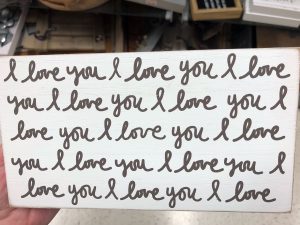 I love you I love you I love
you I love you I love you I
love you I love you I love
you I love you I love you I
love you I love you I love